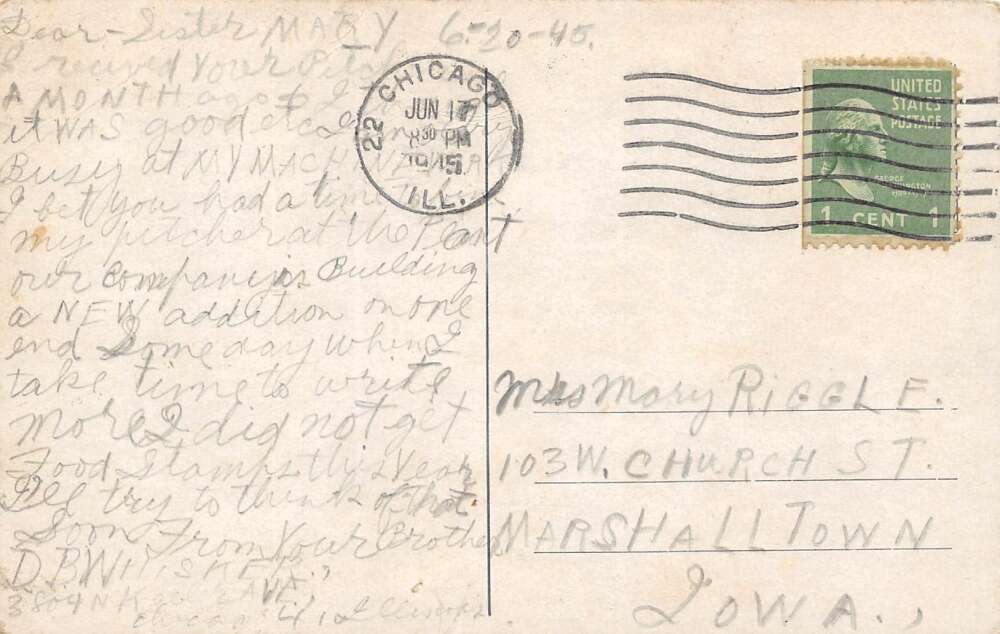 Dear-Sister MARY 6-20-45.
I recived Your
A MONTH ago
it WAS good etc
Busy at MY MACH
I bet you had a time
my pitcher at the Plant
our company is Building
a NEW addition on one
end Some day when I
take time to write
more I did not get
Food Stamps this Year
I'll try to think of that
Soon From Your Brother
D.B.
3804 N AVE.,
Chicago 41, Illinois.
22 CHICAGO
JUN 17
8 30 PM
1945
ILL.
UNITED
STATES
POSTAGE
GEORGE
WASHINGTON
1 CENT 1
Mrs Mary RIGGLE.
103 W. CHURCH ST.
MARSHALLTOWN
IOWA.,